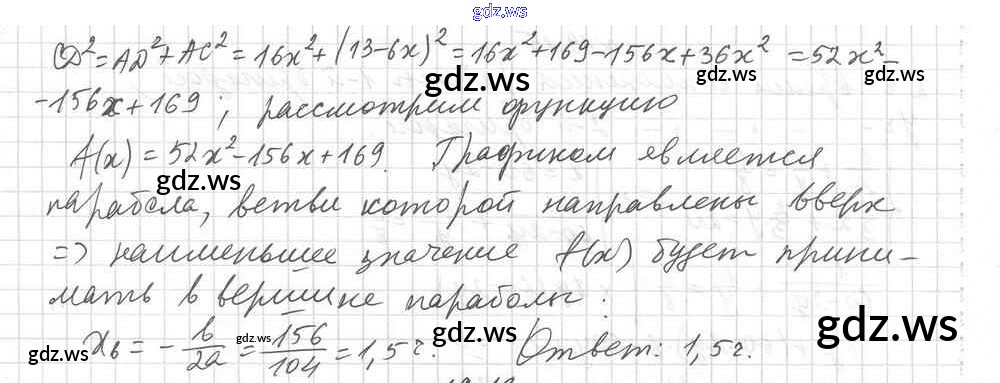 gdz.ws
CD² = AD² + AC² = 16x² + (13-6x)² = 16x² + 169 - 156x + 36x² = 52x² -
gdz.ws gdz.ws
- 156x + 169 ; рассмотрим функцию
f(x) = 52x² - 156x + 169. Графиком является
gdz.ws
парабола, ветви которой направлены вверх
=> наименьшее значение f(x) будет прини-
gdz.ws
мать в вершине параболы.
xв = - b/2a = 156/104 = 1,5 г. Ответ: 1,5 г.
gdz.ws gdz.ws gdz.ws gdz.ws gdz.ws